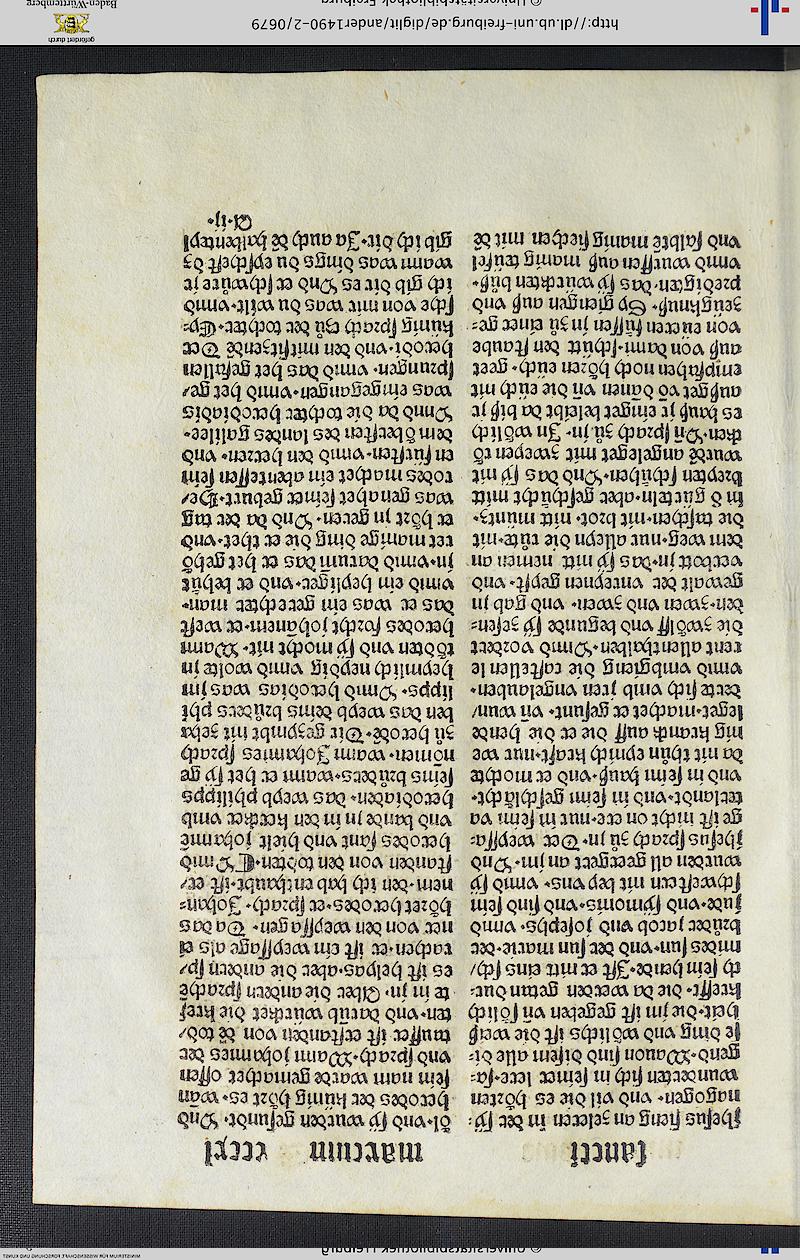 sancti marcum ccccxl
jhesus fieng an zeleren in der sy-
nagogen· vnd vil die es hörten
wunderten sich in seiner lere·sa-
gend·Wanon sind disem alle di-
se ding vnd wölichs ist die weisz
heit·die im ist gegeben vñ sölich
krefft·die da werden getan dur-
ch sein hende·Ist er nitt eins sch/
mides sun·vnd der sun marie·der
brůder iacob vnd iosephs·vnnd
jude·vnd symonis·vnd sind sein
schwestern nit bey vns· vnnd sy
wurden all geergert an im·Vnd
jhesus sprach zů in· Der weyssa-
ge ist nicht on ere·nur in seim va
terland·vnd in seim geschlächt·
vnd in seim hausz·vnd er mocht
da nit thůn einich krafft·nur we
nig kranck auff die er die hende
leget·machet er gesunt· vñ wun/
derte sich vmb iren vngelauben·
vnnd vmbgieng die castellen le
rent allenthalben·Vnnd vordert
die zwölff vnd begunde sy zesen-
den·zwen· vnd zwen· vnd gab in
gewalt der vnreynen geyst· vnd
verbott in·das sy nitt nemen an
dem weg·nur alleyn die růt·nit
die taschen·nit brot· nitt müntz·
in d gürteln·aber geschücht mitt
brechen schůhen·Vnd das sy nit
wurdē angeleget mit zweyen rö
cken·Vñ sprach zů in· In wölich
es hausz ir einget beleibt da bisz ir
auszget vō dannen vñ die euch nit
empfahen noch hören euch· geet
ausz von dann·schütt den staube
von eueren füssen in zů einer ge-
zeügknusz· Sy giengen ausz vnd
predigten· das sy würckten busz·
vnnd wurffen ausz mannig teüfel
vnd salbten manig siechen mit de
öl·vnd sy wurden gesundt· Vnd
herodes der künig hört es· wan
sein nam ward gemachet offen
vnd sprach·Wann iohannes der
tauffer ist erstanden von dē tod/
ten· vnd darub würcket die kref
te in in· Aber die anderen sprachē
es ist helyas·aber die andern sp/
rachen·er ist ein weyssage als ei
ner von den weyssagen· Do das
höret herodes·er sprach· Johan-
nem·den ich hab enthaubt·ist er/
standen von den todten· Vnnd
herodes sant vnd hielt iohanne
vnd bande in in den kercker vmb
herodiaden·das weyb philipps
seins brůders·wann er het sy ge
nomen· wann Johannes sprach
zů herode· Dir gezimpt nit zeha
ben das weyb deins brůders phi
lipps· Vnnd herodias was im
heymlich nehdig vnnd wolte in
tödten vnd sy mocht nit· Wann
herodes forcht iohannem·er west
das er was ein gerechter man·
vnnd ein heyliger·vnd er behůt
in·vnnd darum das er het gehö
ret manige ding die er thet·vnd
er hört in geren· Vnnd do der tag
was genahet seiner geburt·He/
rodes machet ein abentessen sein
en fürsten·vnnd den herren·vnd
dem öbersten des landes galilee·
Vnnd da die tochter herodiadis
was eingegangen·vnnd het ge/
sprungen·vnnd das het gefallen
herodi·vnd den mitsitzende Der
künig sprach zů der tochter·Ey-
sche von mir was du wilt·vnnd
ich gib dir es Vnd er schwůre ir
wann was dings du eyschest dz
gib ich dir·Ja auch dz halbenteyl
A·ij·
http://dl.ub.uni-freiburg.de/diglit/ander1490-2/0679
© Universitätsbibliothek Freiburg
gefördert durch
Baden-Württemberg